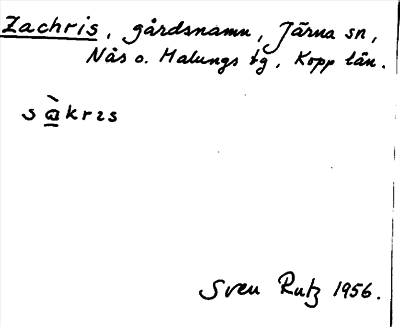 Zachris, gårdsnamn, Järna sn,
Nås o. Malungs tg, Kopp län.
sàkrıs
Sven Rutz 1956.